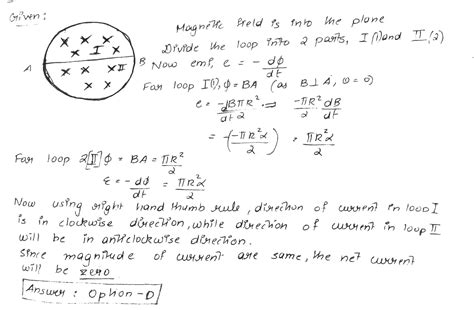 Given:
Magnetic field is into the plane
Divide the loop into 2 parts, I (1) and II (2)
I
A
II
B
Now emf, e = - dϕ/dt
For loop I(1), ϕ = BA (as B ⊥ A, θ = 0)
e = -dBπR²/dt 2 ⇒ -πR²/2 dB/dt
= -(-πR²α/2) = πR²α/2
For loop 2[II] ϕ = BA = πR²/2
ε = -dϕ/dt = πR²α/2
Now using right hand thumb rule, direction of current in loop I
is in clockwise direction, while direction of current in loop II
will be in anticlockwise direction.
Since magnitude of current are same, the net current
will be zero
Answer: Option-D